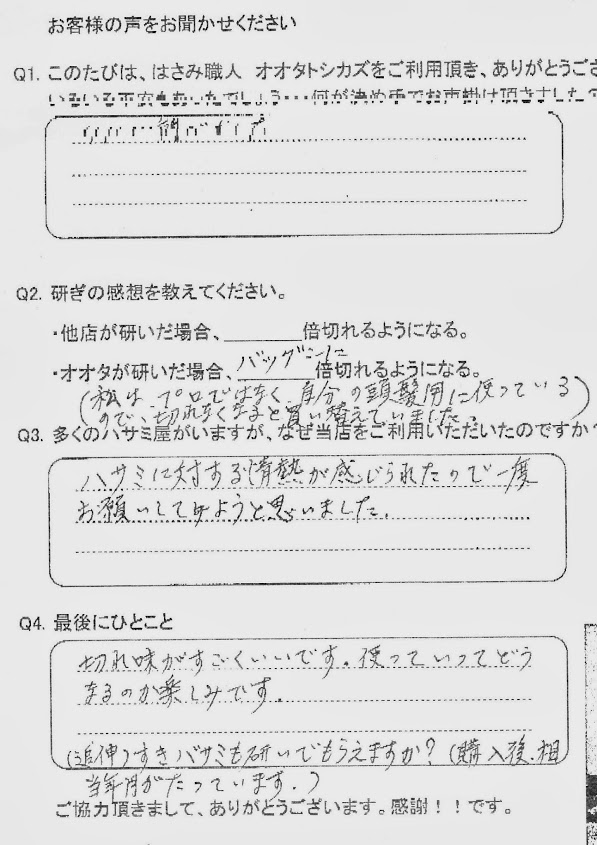 お客様の声をお聞かせください
Q1. このたびは、はさみ職人 オオタトシカズをご利用頂き、ありがとうござ
いろいろ不安もあったでしょう・・・何が決め手でお声掛け頂きましたか
Q2. 研ぎの感想を教えてください。
・他店が研いだ場合、________倍切れるようになる。
・オオタが研いだ場合、バツグンに倍切れるようになる。
(私は、プロではなく、自分の頭髪用に使っている)
ので、切れなくなると買い替えていました。
Q3. 多くのハサミ屋がいますが、なぜ当店をご利用いただいたのですか?
ハサミに対する情熱が感じられたので一度
お願いしてみようと思いました。
Q4. 最後にひとこと
切れ味がすごくいいです。使っていってどう
なるのか楽しみです。
(追伸)すきバサミも研いでもらえますか?(購入後、相
当年月がたっています。)
ご協力頂きまして、ありがとうございます。感謝!!です。